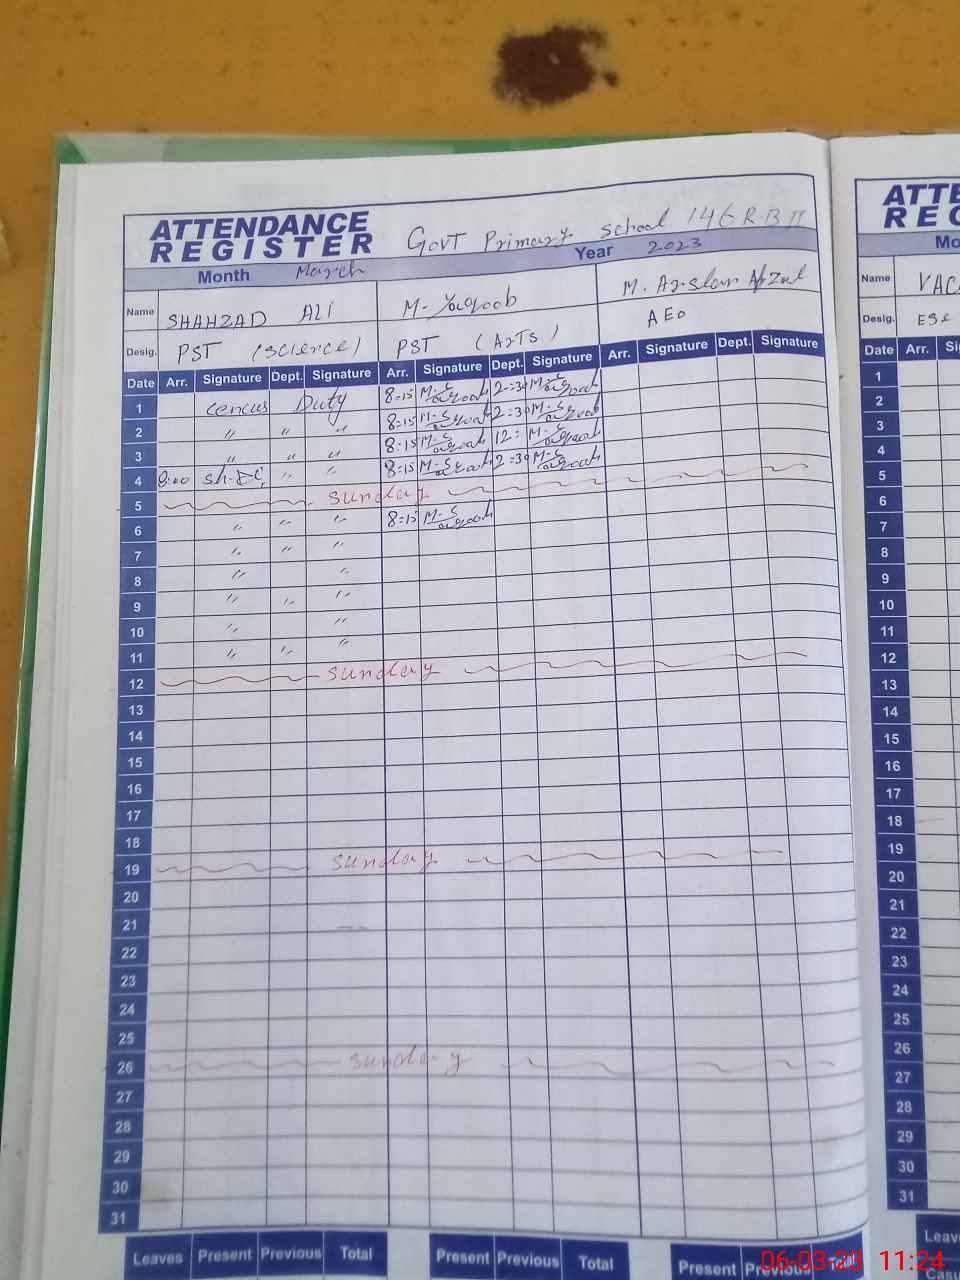 ATTENDANCE REGISTER Govt Primary School 146 R-B II
Month March Year 2023
Name SHAHZAD ALI M. Yaqoob M. Arslan Afzal
Desig. PST (Science) PST (Arts) AEO
Date Arr. Signature Dept. Signature Arr. Signature Dept. Signature Arr. Signature Dept. Signature
1 cencus Duty 8=15 2=30
2 〃 〃 〃 8=15 2=30
3 〃 〃 〃 8=15 12=
4 8:00 〃 〃 8=15 2=30
5 sunday
6 〃 〃 〃 8=15
7 〃 〃 〃
8 〃 〃
9 〃 〃 〃
10 〃 〃
11 〃 〃 〃
12 sunday
13
14
15
16
17
18
19 sunday
20
21
22
23
24
25
26 sunday
27
28
29
30
31
Leaves Present Previous Total Present Previous Total Present Previous Total
ATTE
REG
Mo
Name VAC
Desig. ESE
Date Arr. Si
1
2
3
4
5
6
7
8
9
10
11
12
13
14
15
16
17
18
19
20
21
22
23
24
25
26
27
28
29
30
31
Leave
Casu
06-03-23 11:24